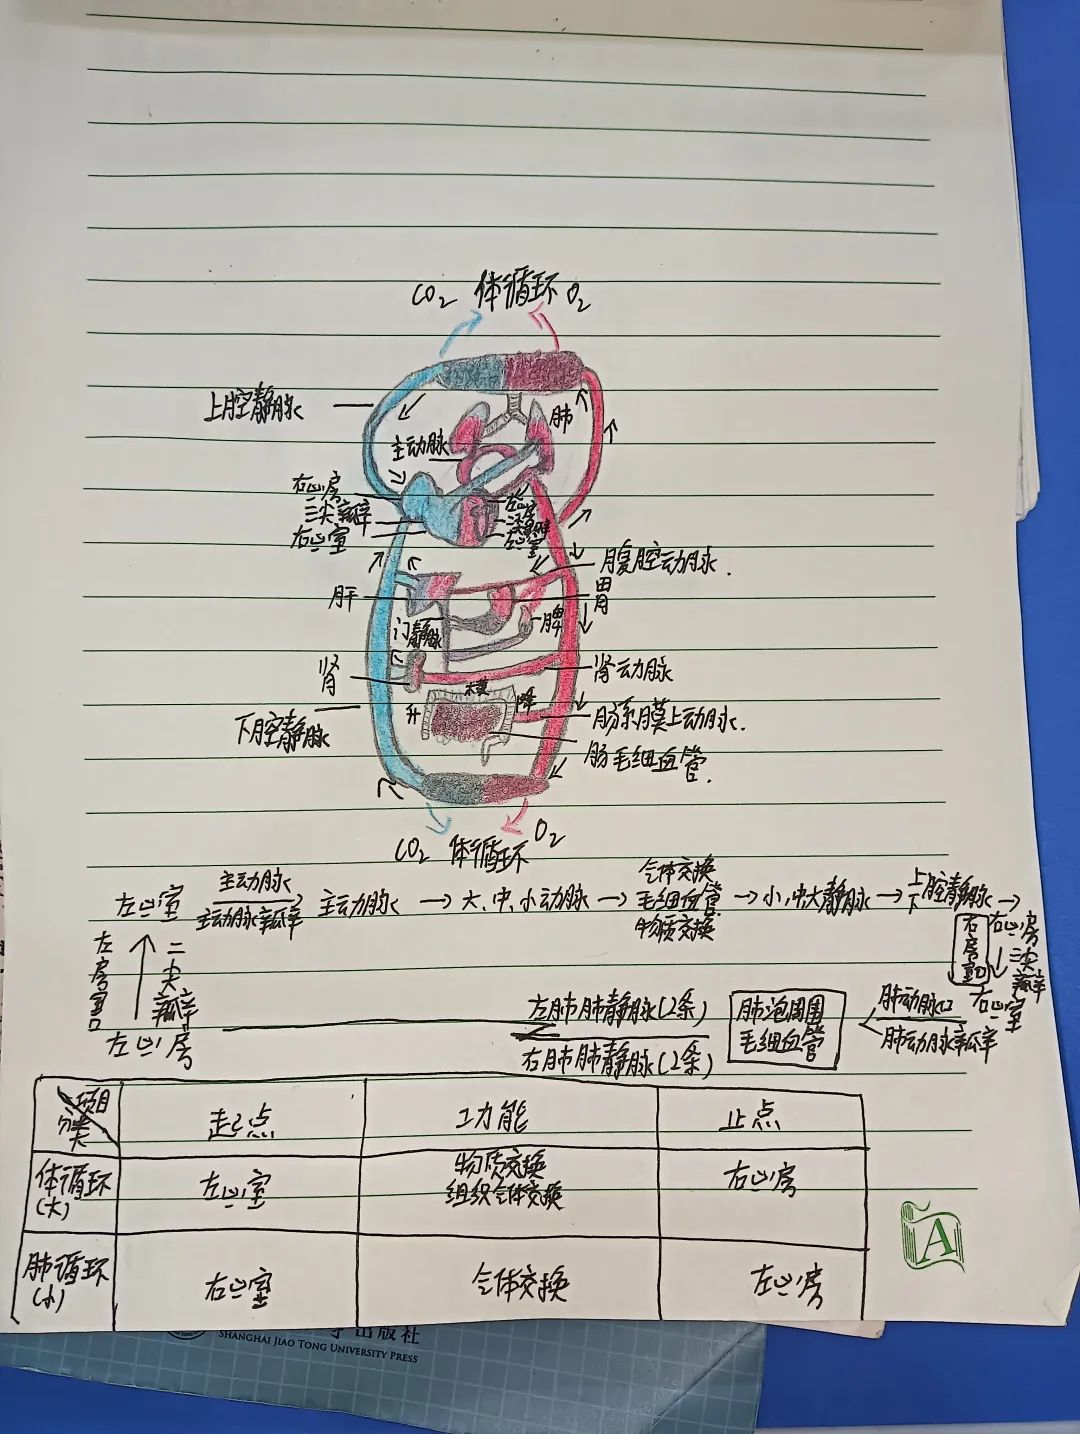 CO₂ 体循环 O₂
上腔静脉
肺
主动脉
右心房
三尖瓣
右心室
左心房
二尖瓣
左心室
腹腔动脉.
胃
肝
门静脉
脾
肾
肾动脉
横
升
降
下腔静脉
肠系膜上动脉.
肠毛细血管.
CO₂ 体循环 O₂
左心室 主动脉 主动脉瓣 主动脉 → 大、中、小动脉 → 气体交换 毛细血管 物质交换 → 小,中大静脉 → 上下腔静脉 →
左房室口 二尖瓣
右房室口 右心房 三尖瓣 右心室
左心房
左肺肺静脉(2条)
右肺肺静脉(2条)
肺泡周围
毛细血管
肺动脉口
肺动脉瓣
项目 分类 起点 功能 止点
体循环(大) 左心室 物质交换 组织气体交换 右心房
肺循环(小) 右心室 气体交换 左心房
A
出版社
SHANGHAI JIAO TONG UNIVERSITY PRESS